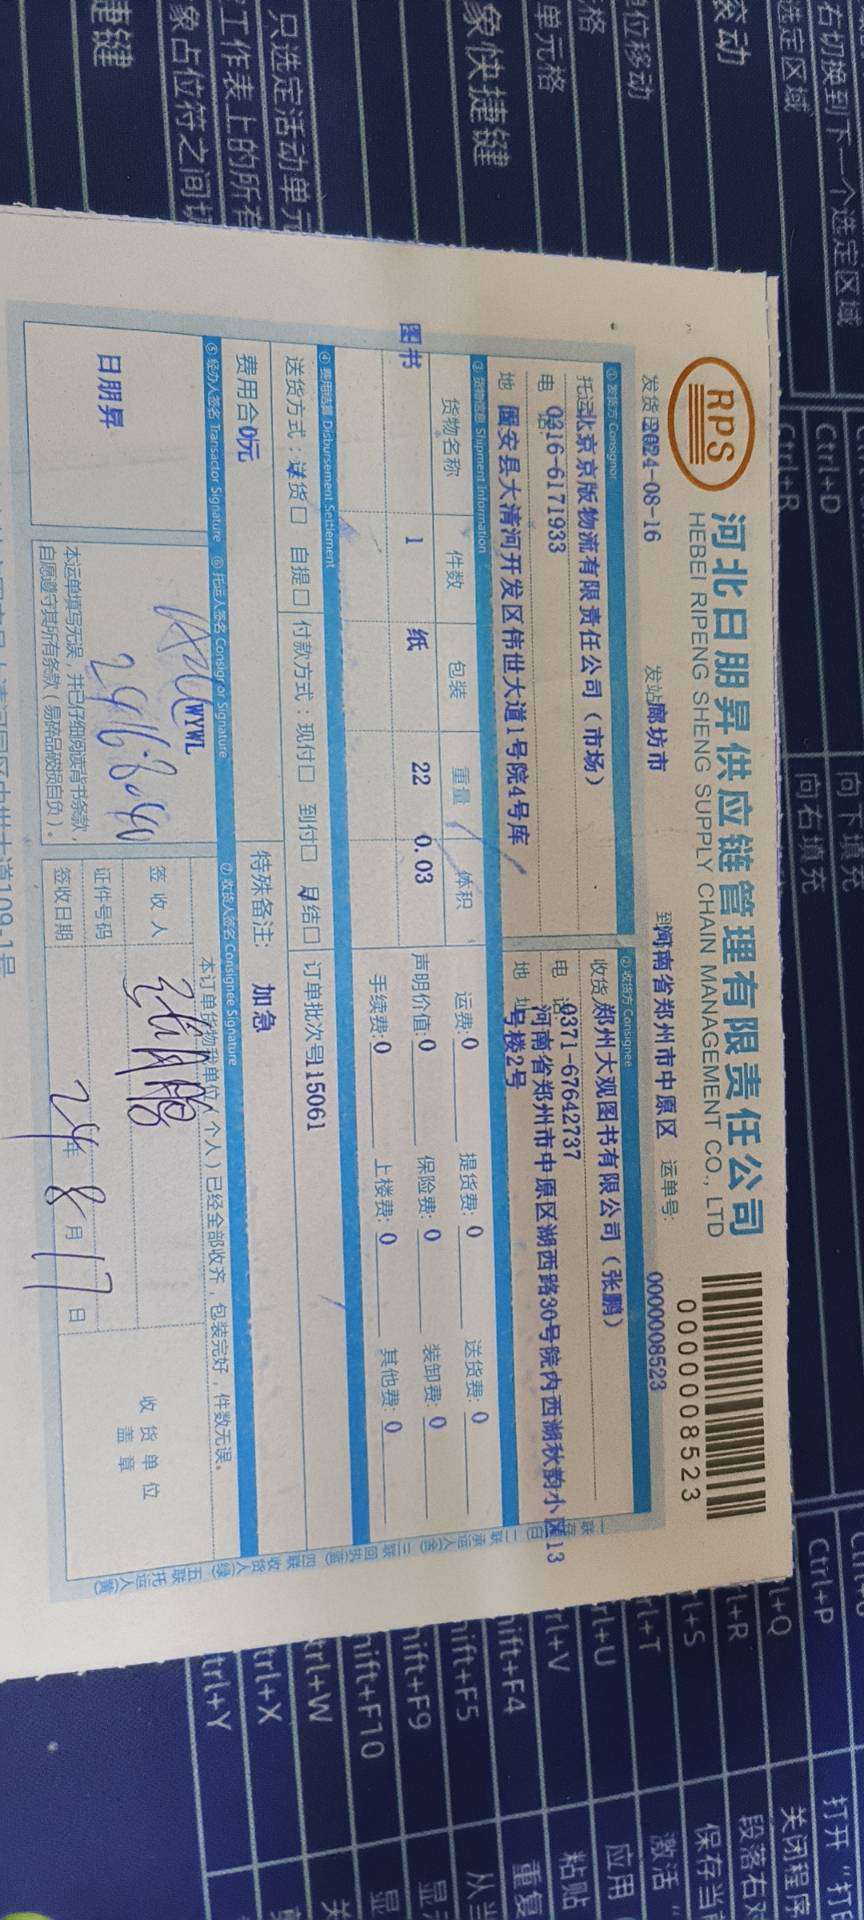 RPS
河北日朋昇供应链管理有限责任公司
HEBEI RIPENG SHENG SUPPLY CHAIN MANAGEMENT CO., LTD
0000008523
发货日2024-08-16 发站廊坊市 到河南省郑州市中原区 运单号: 0000008523
① 发货方 Consignor ② 收货方 Consignee
托运北京京版物流有限责任公司(市场) 收货郑州大观图书有限公司(张鹏)
电话:0316-6171933 电话:0371-67642737
地 固安县大清河开发区伟世大道1号院4号库 地址 河南省郑州市中原区湖西路30号院内西湖秋韵小区13
号楼2号
③ 货物信息 Shipment Information
货物名称 件数 包装 重量 体积 运费:0 提货费:0 送货费:0
图书 1 纸 22 0.03 声明价值:0 保险费:0 装卸费:0
手续费:0 上楼费:0 其他费:0
④ 费用结算 Disbursement Settlement
送货方式:送货口 自提口 付款方式:现付口 到付口 月结口 订单批次号115061
费用合0元 特殊备注: 加急
⑤ 经办人签名 Transactor Signature ⑥ 托运人签名 Consignor Signature ⑦ 收货人签名 Consignee Signature
日朋昇
WYWL
本运单填写无误,并已仔细阅读背书条款,
自愿遵守其所有条款(易碎品破损自负)。
本订单货物我单位(个人)已经全部收齐,包装完好,件数无误。
签收人
证件号码
签收日期 24年8月17日
收货单位
盖章
二联承运人(金) 三联回执(蓝) 四联收货人(绿) 五联托运人(黄)
右切换到下一个选定区域
选定区域
滚动
单位移动
格
单元格
象快捷键
只选定活动单元
工作表上的所有
象占位符之间切
捷键
Ctrl+D
向下填充
Ctrl+R
向右填充
Ctrl+P
打开“打印
关闭程序
段落右对
保存当前
激活“
应用
粘贴
重复
从当